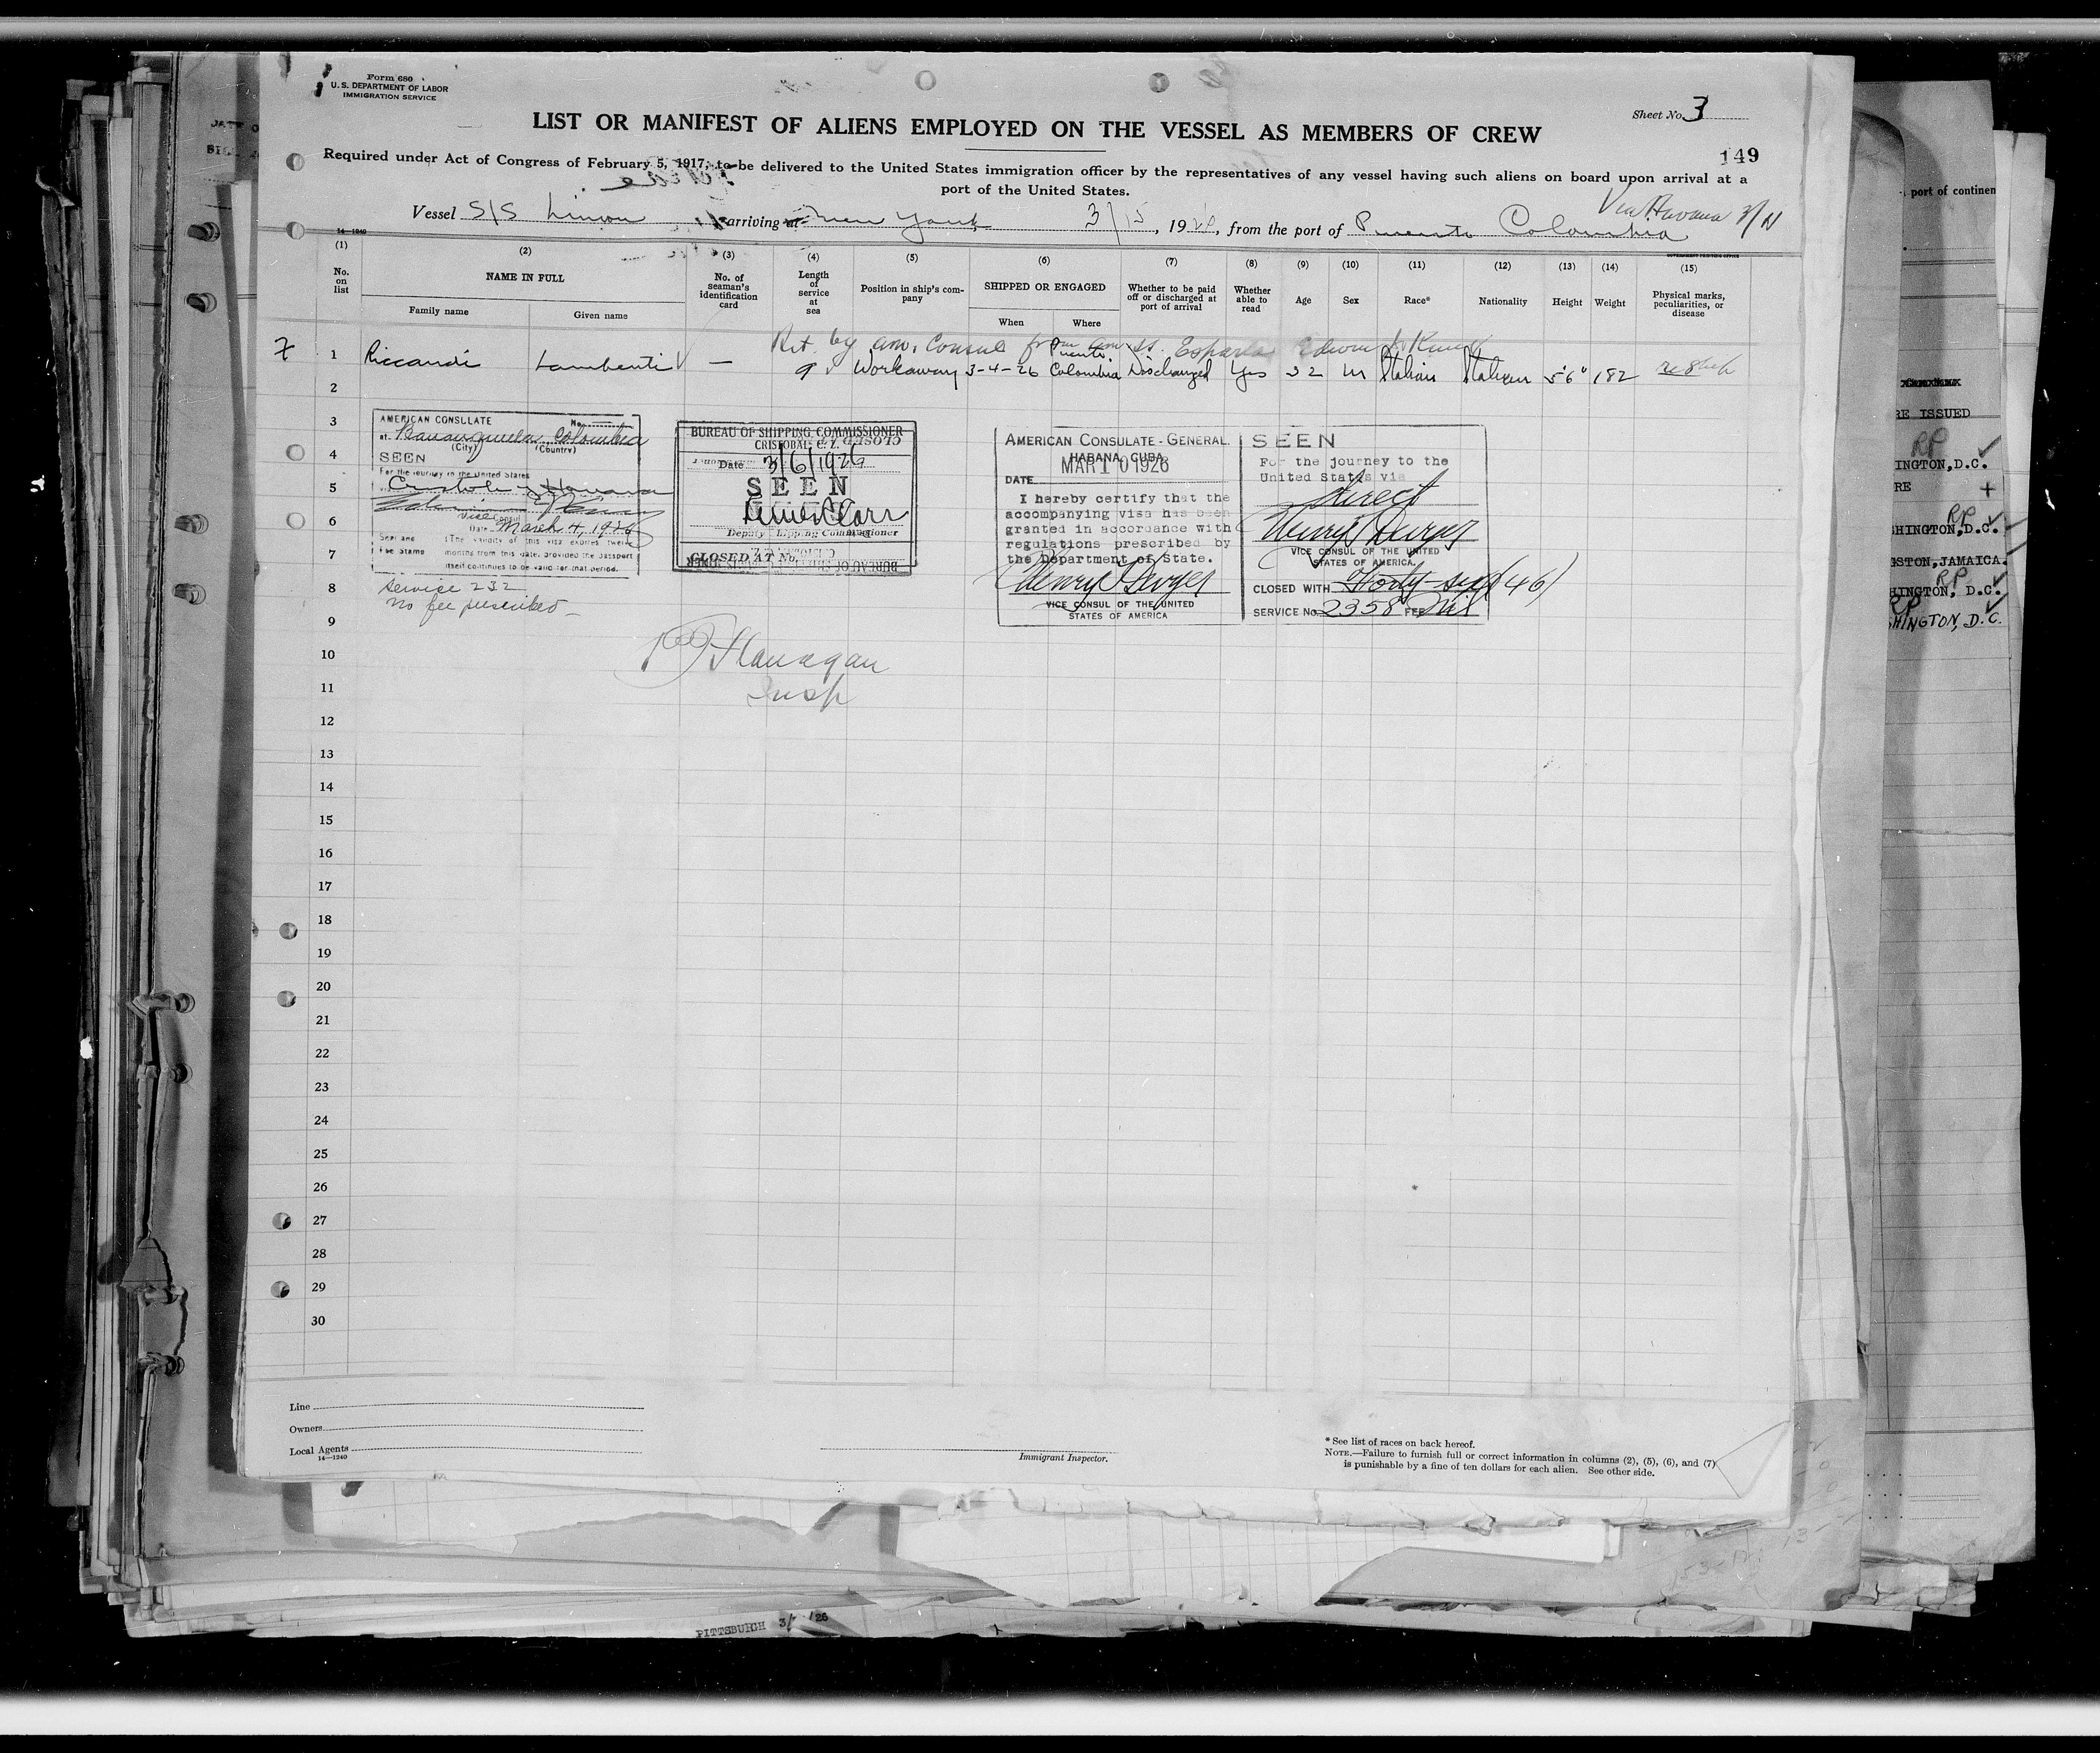 Form 680
U. S. DEPARTMENT OF LABOR
IMMIGRATION SERVICE
Sheet No. 3
LIST OR MANIFEST OF ALIENS EMPLOYED ON THE VESSEL AS MEMBERS OF CREW
149
Required under Act of Congress of February 5, 1917, to be delivered to the United States immigration officer by the representatives of any vessel having such aliens on board upon arrival at a
port of the United States.
Via Havana
Vessel S/S Limon arriving at New York 3/15, 1926, from the port of Puerto Colombia
14—1240
(1) (2) (3) (4) (5) (6) (7) (8) (9) (10) (11) (12) (13) (14) (15)
No. on list
NAME IN FULL
Family name
Given name
No. of seaman's identification card
Length of service at sea
Position in ship's company
SHIPPED OR ENGAGED
When
Where
Whether to be paid off or discharged at port of arrival
Whether able to read
Age
Sex
Race*
Nationality
Height
Weight
Physical marks, peculiarities, or disease
Ret. by Am. Consul from Am. SS. Esparta
1 Riccardi Lamberti — 9 Workaway 3-4-26 Puerto Colombia Discharged Yes 32 M Italian Italian 5'6" 182
2
3
4
5
6
7
8
9
10
11
12
13
14
15
16
17
18
19
20
21
22
23
24
25
26
27
28
29
30
AMERICAN CONSULATE No.
at Barranquilla, Colombia
(City) (Country)
SEEN
For the journey to the United States
via Cristobal & Havana
Vice Consul
Date March 4, 1926
Seal and Fee Stamp
(The validity of this visa expires twelve
months from this date, provided the passport
itself continues to be valid for that period.
Service 232
No fee prescribed—
BUREAU OF SHIPPING COMMISSIONER
CRISTOBAL C. Z.
Date 3/6/1926
SEEN
Deputy Shipping Commissioner
CLOSED AT No.
AMERICAN CONSULATE-GENERAL.
HABANA, CUBA.
MAR 10 1926
DATE
I hereby certify that the
accompanying visa has been
granted in accordance with
regulations prescribed by
the Department of State.
VICE CONSUL OF THE UNITED
STATES OF AMERICA
SEEN
For the journey to the
United States via
direct
VICE CONSUL OF THE UNITED
STATES OF AMERICA.
CLOSED WITH Forty-six (46)
SERVICE No. 2358 FEE Nil
Flanagan
Insp
Line
Owners
Local Agents
14—1240
Immigrant Inspector.
* See list of races on back hereof.
NOTE.—Failure to furnish full or correct information in columns (2), (5), (6), and (7)
is punishable by a fine of ten dollars for each alien. See other side.
port of continen
RE ISSUED
RP
INGTON,D.C.
RE +
RP
SHINGTON,D.C.
GSTON,JAMAICA.
RP
HINGTON, D.C.
RP
SHINGTON, D.C.
PITTSBURGH